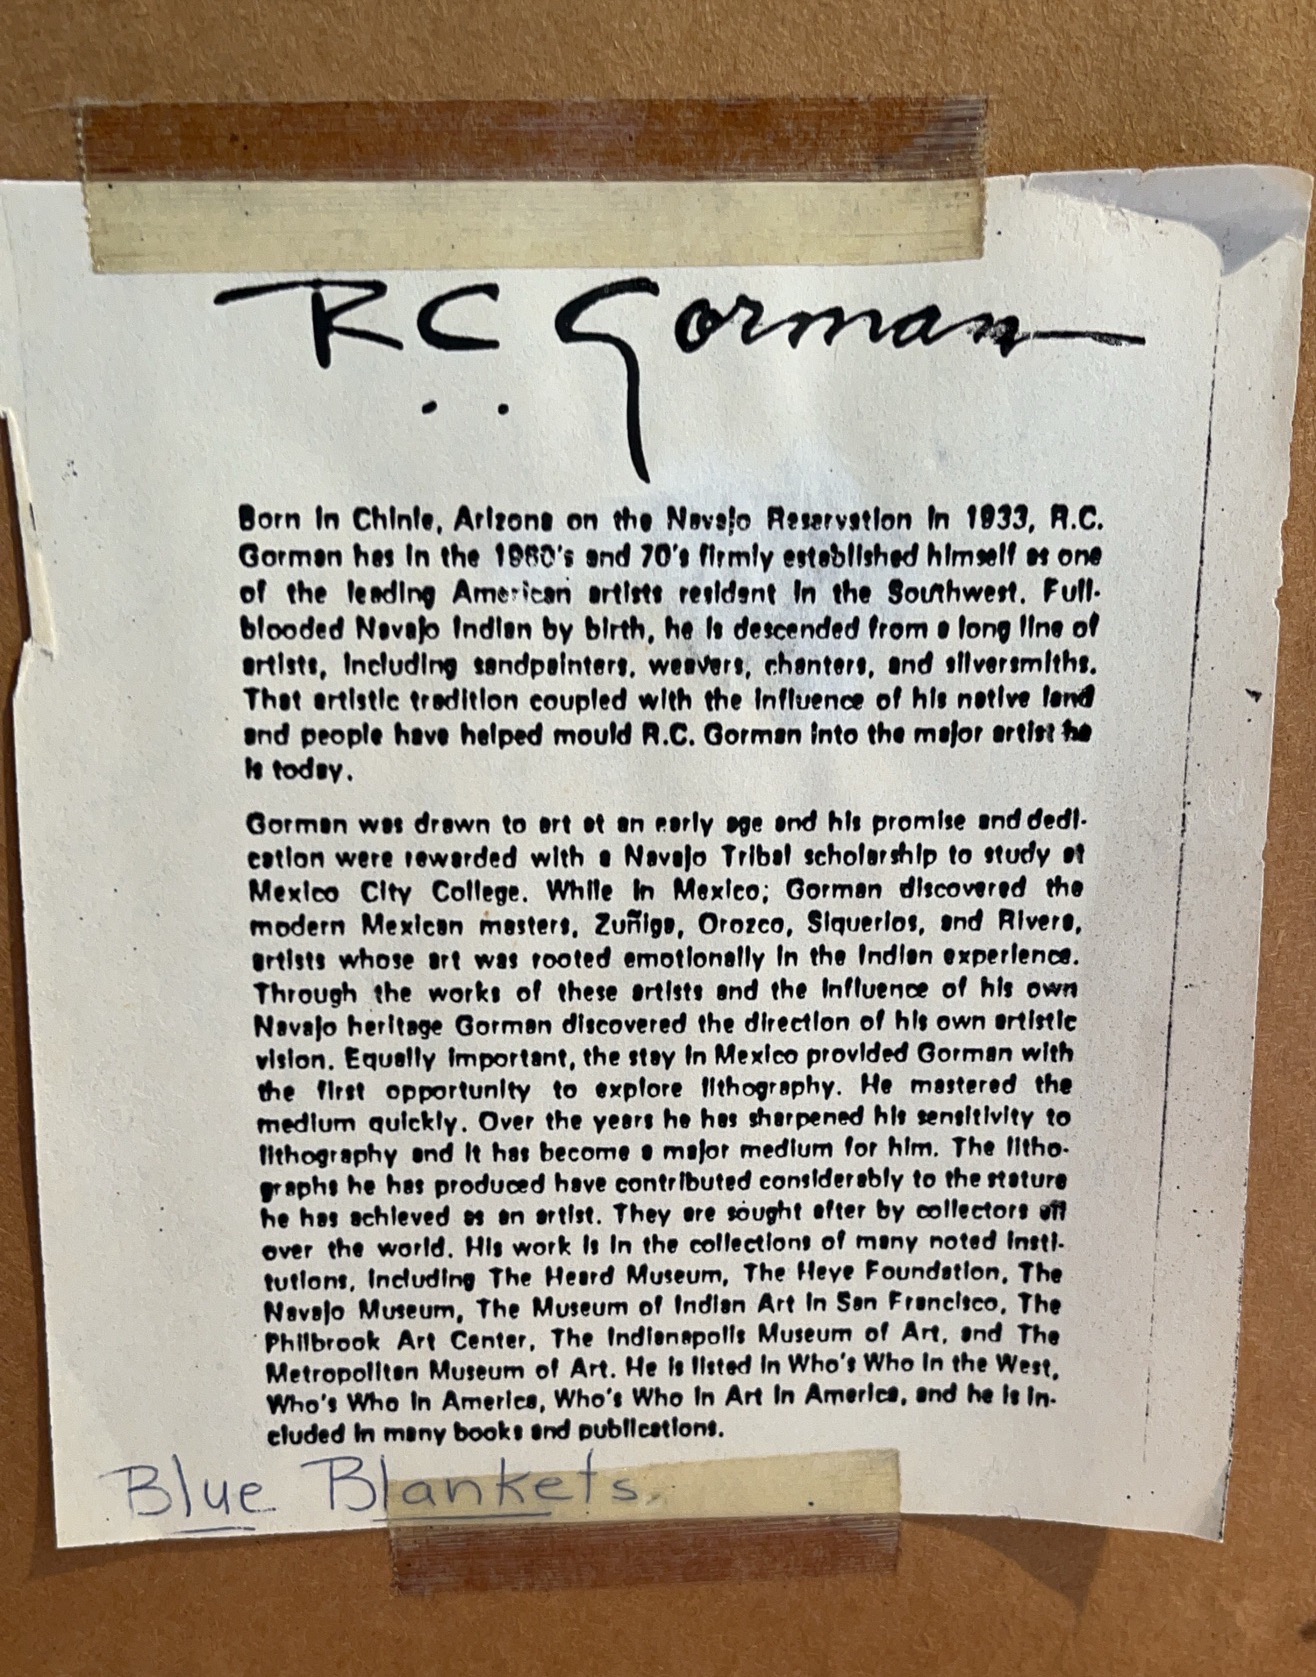 R.C. Gorman
Born in Chinle, Arizona on the Navajo Reservation in 1933, R.C.
Gorman has in the 1960's and 70's firmly established himself as one
of the leading American artists resident in the Southwest. Full-
blooded Navajo Indian by birth, he is descended from a long line of
artists, including sandpainters, weavers, chanters, and silversmiths.
That artistic tradition coupled with the influence of his native land
and people have helped mould R.C. Gorman into the major artist he
is today.
Gorman was drawn to art at an early age and his promise and dedi-
cation were rewarded with a Navajo Tribal scholarship to study at
Mexico City College. While in Mexico; Gorman discovered the
modern Mexican masters, Zuñiga, Orozco, Siquerios, and Rivera,
artists whose art was rooted emotionally in the Indian experience.
Through the works of these artists and the influence of his own
Navajo heritage Gorman discovered the direction of his own artistic
vision. Equally important, the stay in Mexico provided Gorman with
the first opportunity to explore lithography. He mastered the
medium quickly. Over the years he has sharpened his sensitivity to
lithography and it has become a major medium for him. The litho-
graphs he has produced have contributed considerably to the stature
he has achieved as an artist. They are sought after by collectors all
over the world. His work is in the collections of many noted insti-
tutions, including The Heard Museum, The Heye Foundation, The
Navajo Museum, The Museum of Indian Art in San Francisco, The
Philbrook Art Center, The Indianapolis Museum of Art, and The
Metropolitan Museum of Art. He is listed in Who's Who in the West,
Who's Who in America, Who's Who in Art in America, and he is in-
cluded in many books and publications.
Blue Blankets.